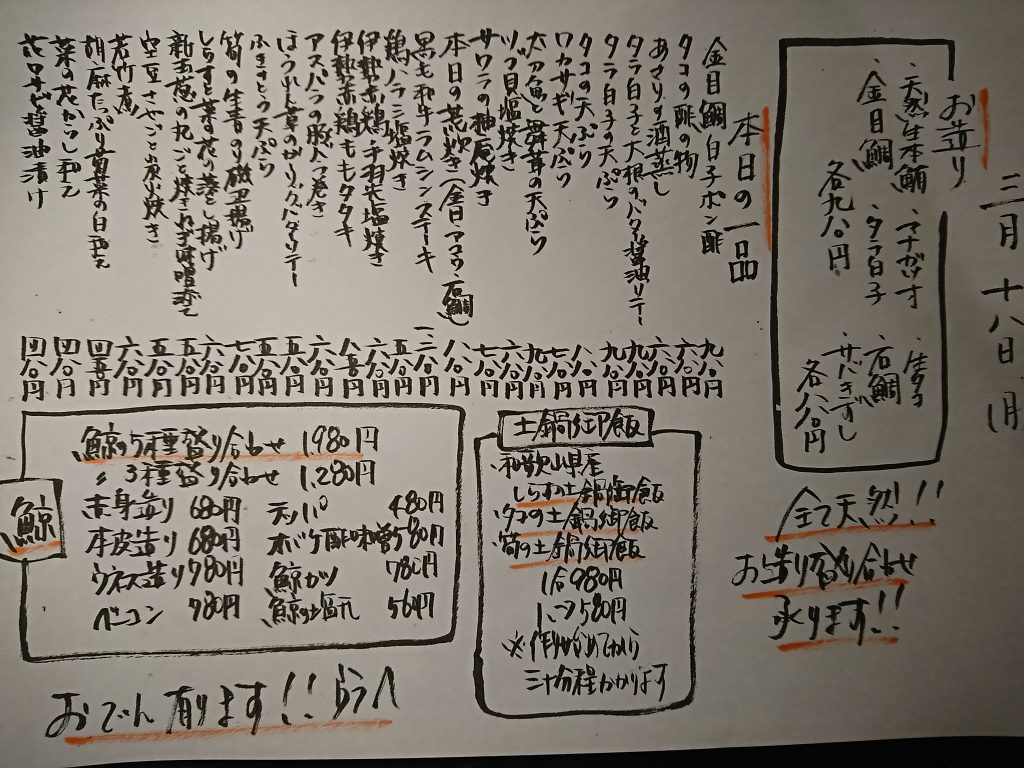 三月十八日(月)
お造り
・天然生本鮪 ・マナガツオ ・生タコ
・金目鯛 ・タラ白子 ・石鯛
各九八〇円 ・サバきずし
各八八〇円
全て天然!!
お造り盛り合わせ
承ります!!
本日の一品
金目鯛白子ポン酢 九八〇円
タコの酢の物 六八〇円
あさりの酒蒸し 六八〇円
タラ白子と大根のバター醤油ソテー 九八〇円
タラ白子の天ぷら 九八〇円
タコの天ぷら 八八〇円
ワカサギ天ぷら 七八〇円
太刀魚と舞茸の天ぷら 九八〇円
ツブ貝塩焼き 六八〇円
サワラの柚庵焼き 七八〇円
本日の荒炊き(金目・マナガツオ・石鯛) 八八〇円
黒毛和牛ラムシンステーキ 一、二八〇円
鶏ハラミ塩焼き 五八〇円
伊勢赤鶏 手羽先塩焼き 六八〇円
伊勢赤鶏ももタタキ 八五〇円
アスパラの豚バラ巻き 六八〇円
ほうれん草のガーリックバターソテー 五八〇円
ふきのとう天ぷら 五五〇円
筍の生青のり磯辺揚げ 七八〇円
しらすと菜の花の落とし揚げ 六八〇円
新玉葱の丸ごと焼き 五八〇円
空豆さやごと炭火焼き 五五〇円
若竹煮 六八〇円
胡麻たっぷり菊菜の白和え 四五〇円
菜の花からし和え 四八〇円
花ワサビ醤油漬け 四八〇円
土鍋御飯
・和歌山県産
しらすの土鍋御飯
・タコの土鍋御飯
・筍の土鍋御飯
1合980円
1、2合580円
※作りはじめてから
三十分程かかります
鯨
鯨の5種盛り合わせ 1,980円
〃 3種盛り合わせ 1,280円
赤身造り 680円 天ッパ 480円
本皮造り 680円 オバケ酢味噌 580円
ウネス造り 780円 鯨カツ 780円
ベーコン 780円 鯨の塩元 560円
おでん有ります!!